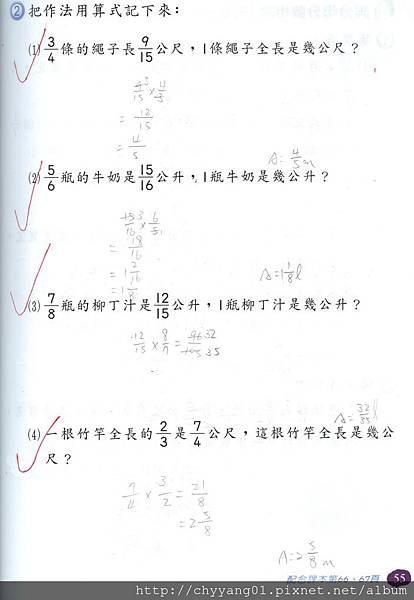 2 把作法用算式記下來：
(1) 3/4 條的繩子長 9/15 公尺，1條繩子全長是幾公尺？
9/15 3 × 4/3
= 12/15
= 4/5
A: 4/5 m
(2) 5/6 瓶的牛奶是 15/16 公升，1瓶牛奶是幾公升？
15/16 3 × 6/5 1
= 18/16
= 1 2/16
= 1 1/8
A=1 1/8 l
(3) 7/8 瓶的柳丁汁是 12/15 公升，1瓶柳丁汁是幾公升？
12/15 × 8/7 = 96/105 32/35
A= 32/35 l
(4) 一根竹竿全長的 2/3 是 7/4 公尺，這根竹竿全長是幾公
尺？
7/4 × 3/2 = 21/8
= 2 5/8
A=2 5/8 m
配合課本第66、67頁 55
http://chyyang01.pixnet.net/album